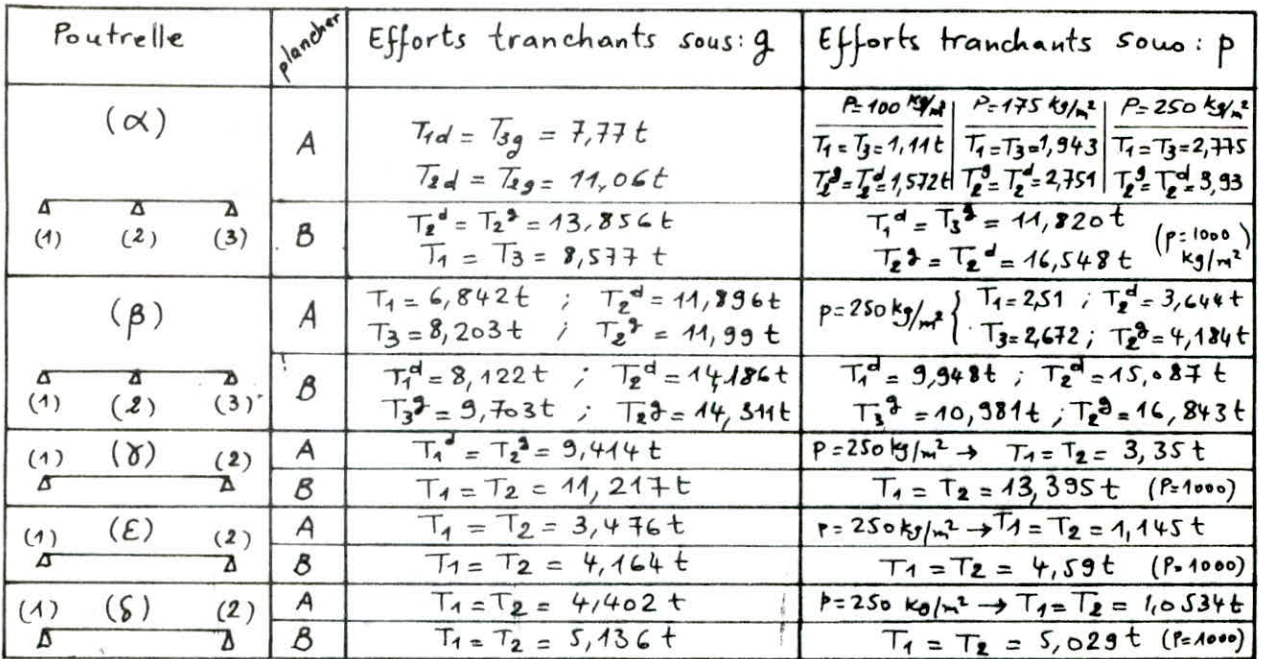 Poutrelle
plancher
Efforts tranchants sous: g
Efforts tranchants sous: p
(α)
(1) (2) (3)
A
T1d = T3g = 7,77 t
T2d = T2g = 11,06 t
P=100 kg/m² | P=175 kg/m² | P=250 kg/m²
T1 = T3 = 1,11 t | T1 = T3 = 1,943 | T1 = T3 = 2,775
T2g = T2d = 1,572 t | T2g = T2d = 2,751 | T2g = T2d = 3,93
B
T2d = T2g = 13,856 t
T1 = T3 = 8,577 t
T1d = T3g = 11,820 t
T2g = T2d = 16,548 t
(p=1000 kg/m²)
(β)
(1) (2) (3)
A
T1 = 6,842 t ; T2d = 11,896 t
T3 = 8,203 t ; T2g = 11,99 t
p=250 kg/m² { T1 = 2,51 ; T2d = 3,644 t
T3 = 2,672 ; T2g = 4,184 t
B
T1d = 8,122 t ; T2d = 14,186 t
T3g = 9,703 t ; T2g = 14,311 t
T1d = 9,948 t ; T2d = 15,087 t
T3g = 10,981 t ; T2g = 16,843 t
(1) (γ) (2)
A
T1d = T2g = 9,414 t
P=250 kg/m² → T1 = T2 = 3,35 t
B
T1 = T2 = 11,217 t
T1 = T2 = 13,395 t (P=1000)
(1) (ε) (2)
A
T1 = T2 = 3,476 t
P=250 kg/m² → T1 = T2 = 1,145 t
B
T1 = T2 = 4,164 t
T1 = T2 = 4,59 t (P=1000)
(1) (δ) (2)
A
T1 = T2 = 4,402 t
P=250 kg/m² → T1 = T2 = 1,0534 t
B
T1 = T2 = 5,136 t
T1 = T2 = 5,029 t (P=1000)